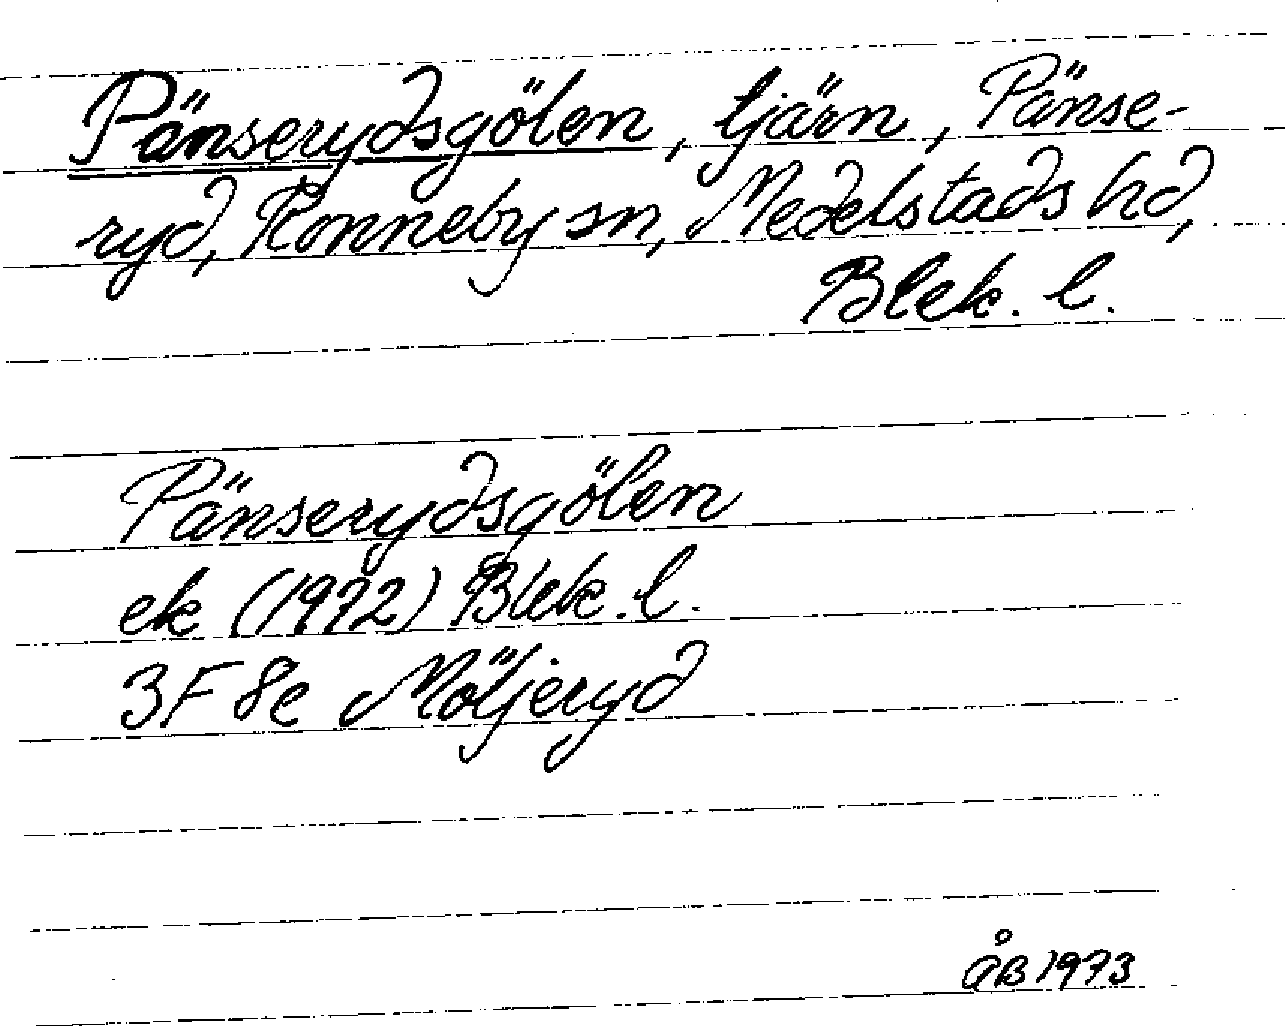 Pänserydsgölen, tjärn, Pänse-
ryd, Ronneby sn, Medelstads hd,
Blek. l.
Pänserydsgölen
ek (1972) Blek. l.
3F 8e Möljeryd
ÅB 1973